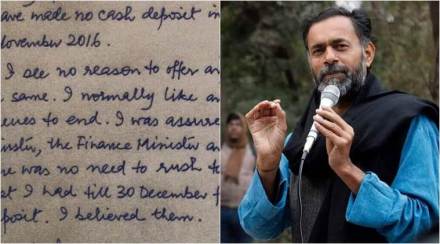 ave made no cash deposit in
November 2016.
I see no reason to offer an
same. I normally like
to end. I was assure
the Finance Minister an
was no need to rush to
t I had till 30 December f
posit. I believed them.